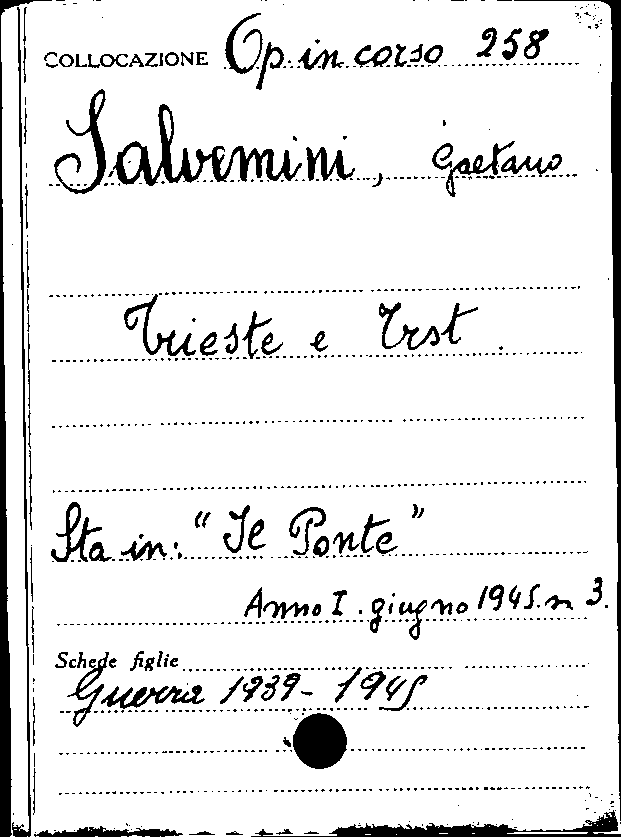 COLLOCAZIONE Op. in corso 258
Salvemini, Gaetano
Trieste e Trst.
Sta in: "Il Ponte"
Anno I. giugno 1945. n 3.
Schede figlie
Guerra 1939-1945